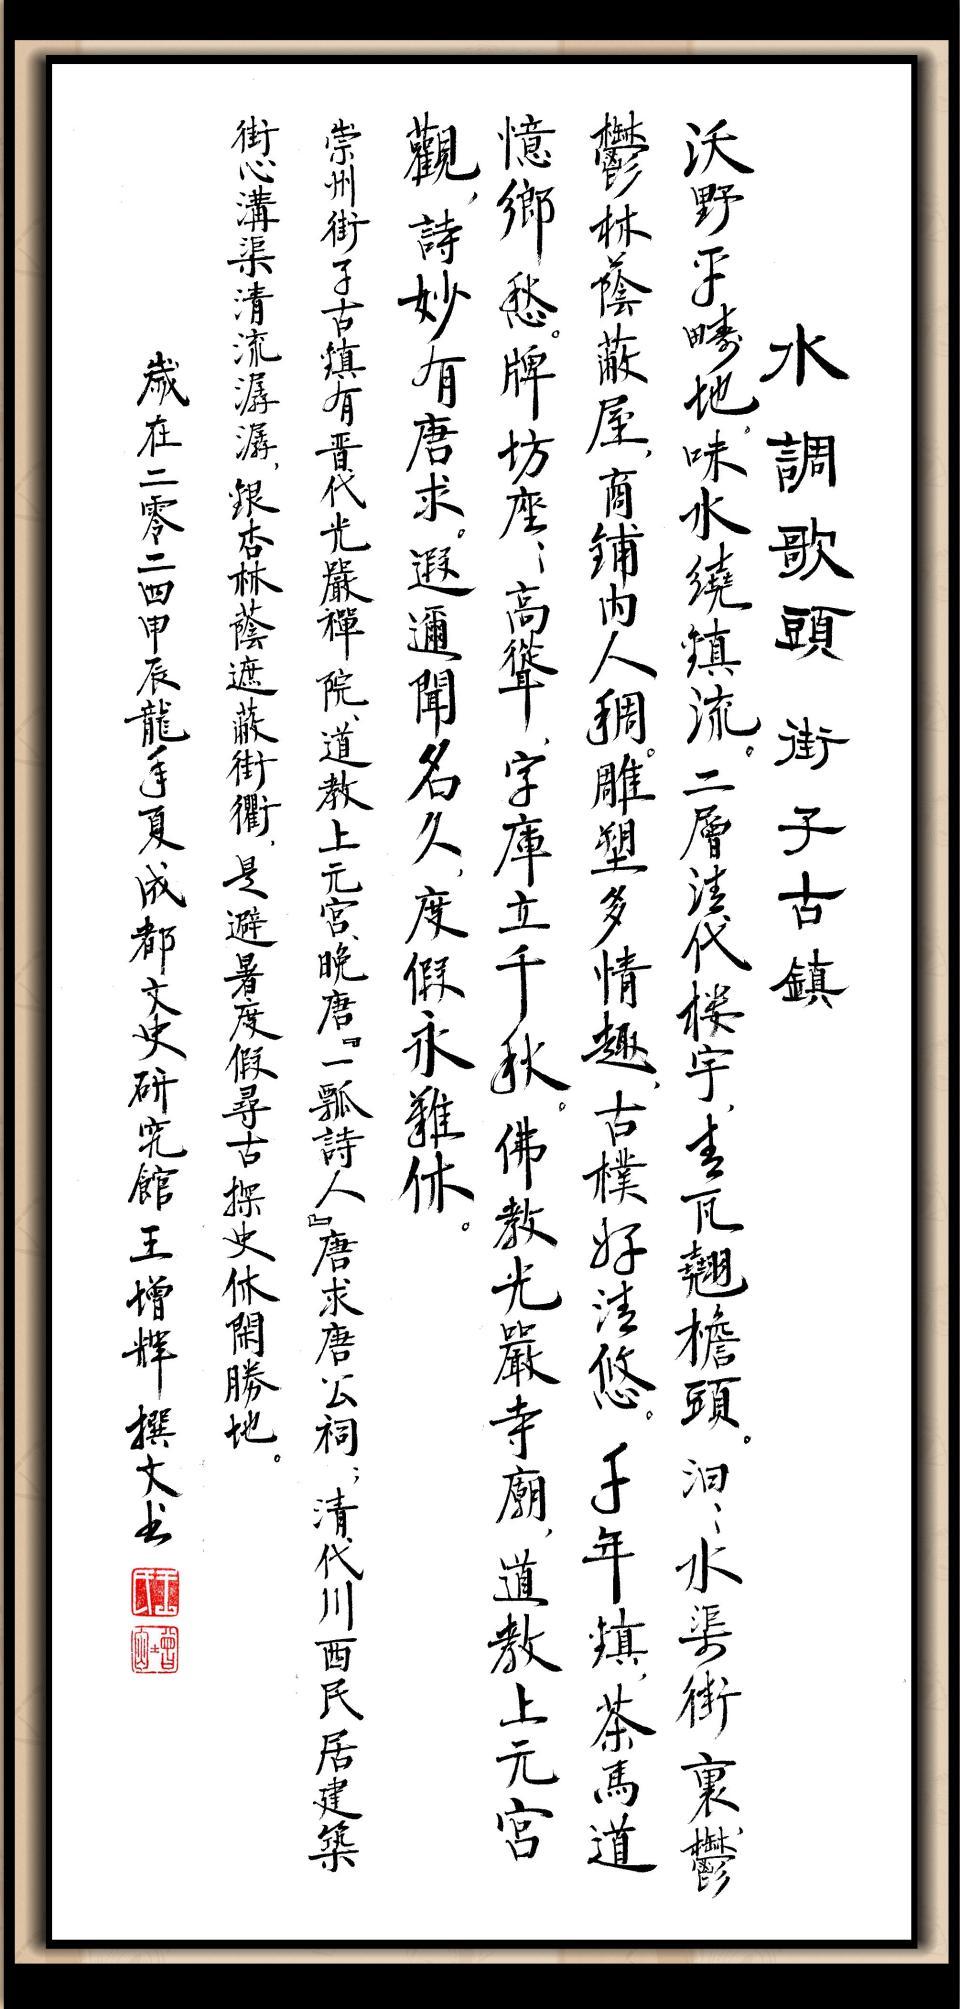 水調歌頭 街子古鎮
沃野平疇地。味水繞鎮流。二層清代楼宇，青瓦翹檐頭。汩汩水渠街裏，鬱
鬱林蔭蔽屋，商鋪内人稠。雕塑多情趣，古樸好清悠。 千年鎮，茶馬道
憶鄉愁。牌坊座座高聳，字庫立千秋。佛教光嚴寺廟，道教上元宫
觀，詩妙有唐求。遐邇聞名久，度假永難休。
崇州街子古鎮有晋代光嚴禪院、道教上元宫、晚唐『一瓢詩人』唐求唐公祠；清代川西民居建築
街心溝渠清流潺潺，銀杏林蔭遮蔽街衢，是避暑度假尋古探史休閑勝地。
歲在二零二四甲辰龍年夏成都文史研究館王增輝撰文书